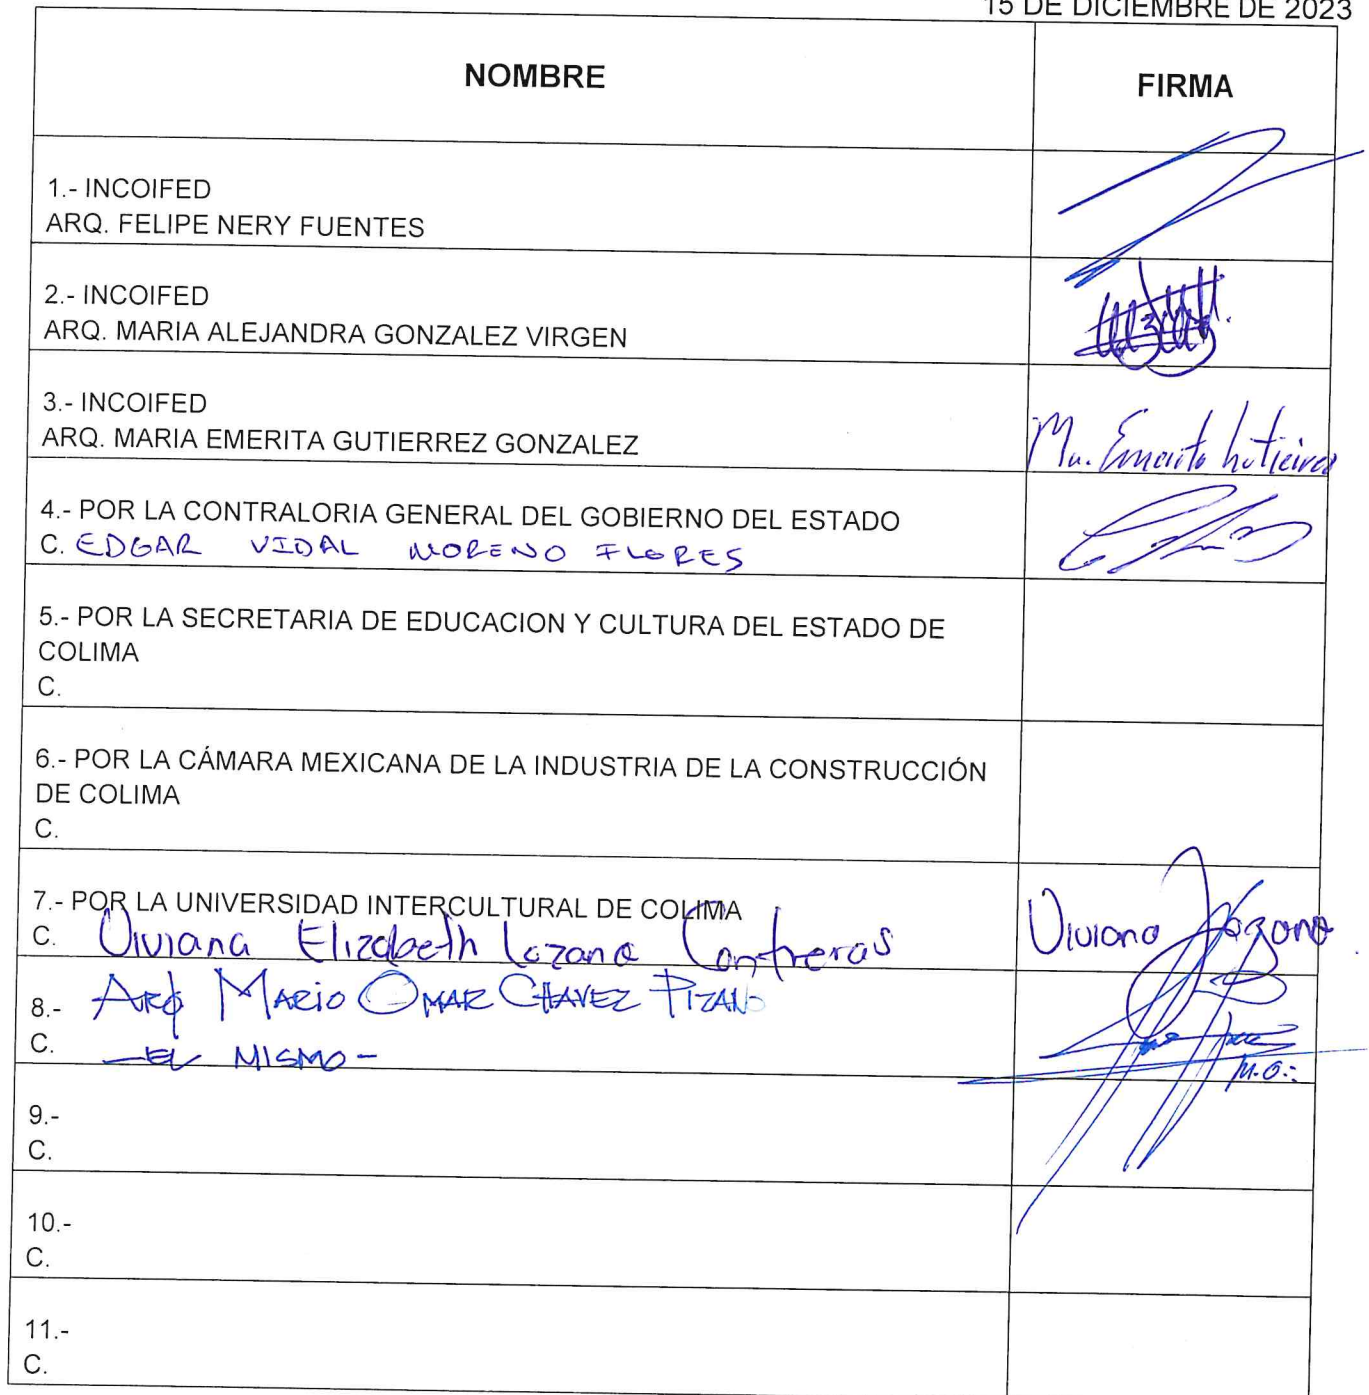 15 DE DICIEMBRE DE 2023
NOMBRE
FIRMA
1.- INCOIFED
ARQ. FELIPE NERY FUENTES
2.- INCOIFED
ARQ. MARIA ALEJANDRA GONZALEZ VIRGEN
3.- INCOIFED
ARQ. MARIA EMERITA GUTIERREZ GONZALEZ
Ma. Emerita
4.- POR LA CONTRALORIA GENERAL DEL GOBIERNO DEL ESTADO
C. EDGAR VIDAL MORENO FLORES
5.- POR LA SECRETARIA DE EDUCACION Y CULTURA DEL ESTADO DE
COLIMA
C.
6.- POR LA CÁMARA MEXICANA DE LA INDUSTRIA DE LA CONSTRUCCIÓN
DE COLIMA
C.
7.- POR LA UNIVERSIDAD INTERCULTURAL DE COLIMA
C. Viviana Elizabeth Lozano Contreras
Viviana Lozano
8.- ARQ MARIO OMAR CHAVEZ PIZANO
C. -EL MISMO-
M.O.
9.-
C.
10.-
C.
11.-
C.